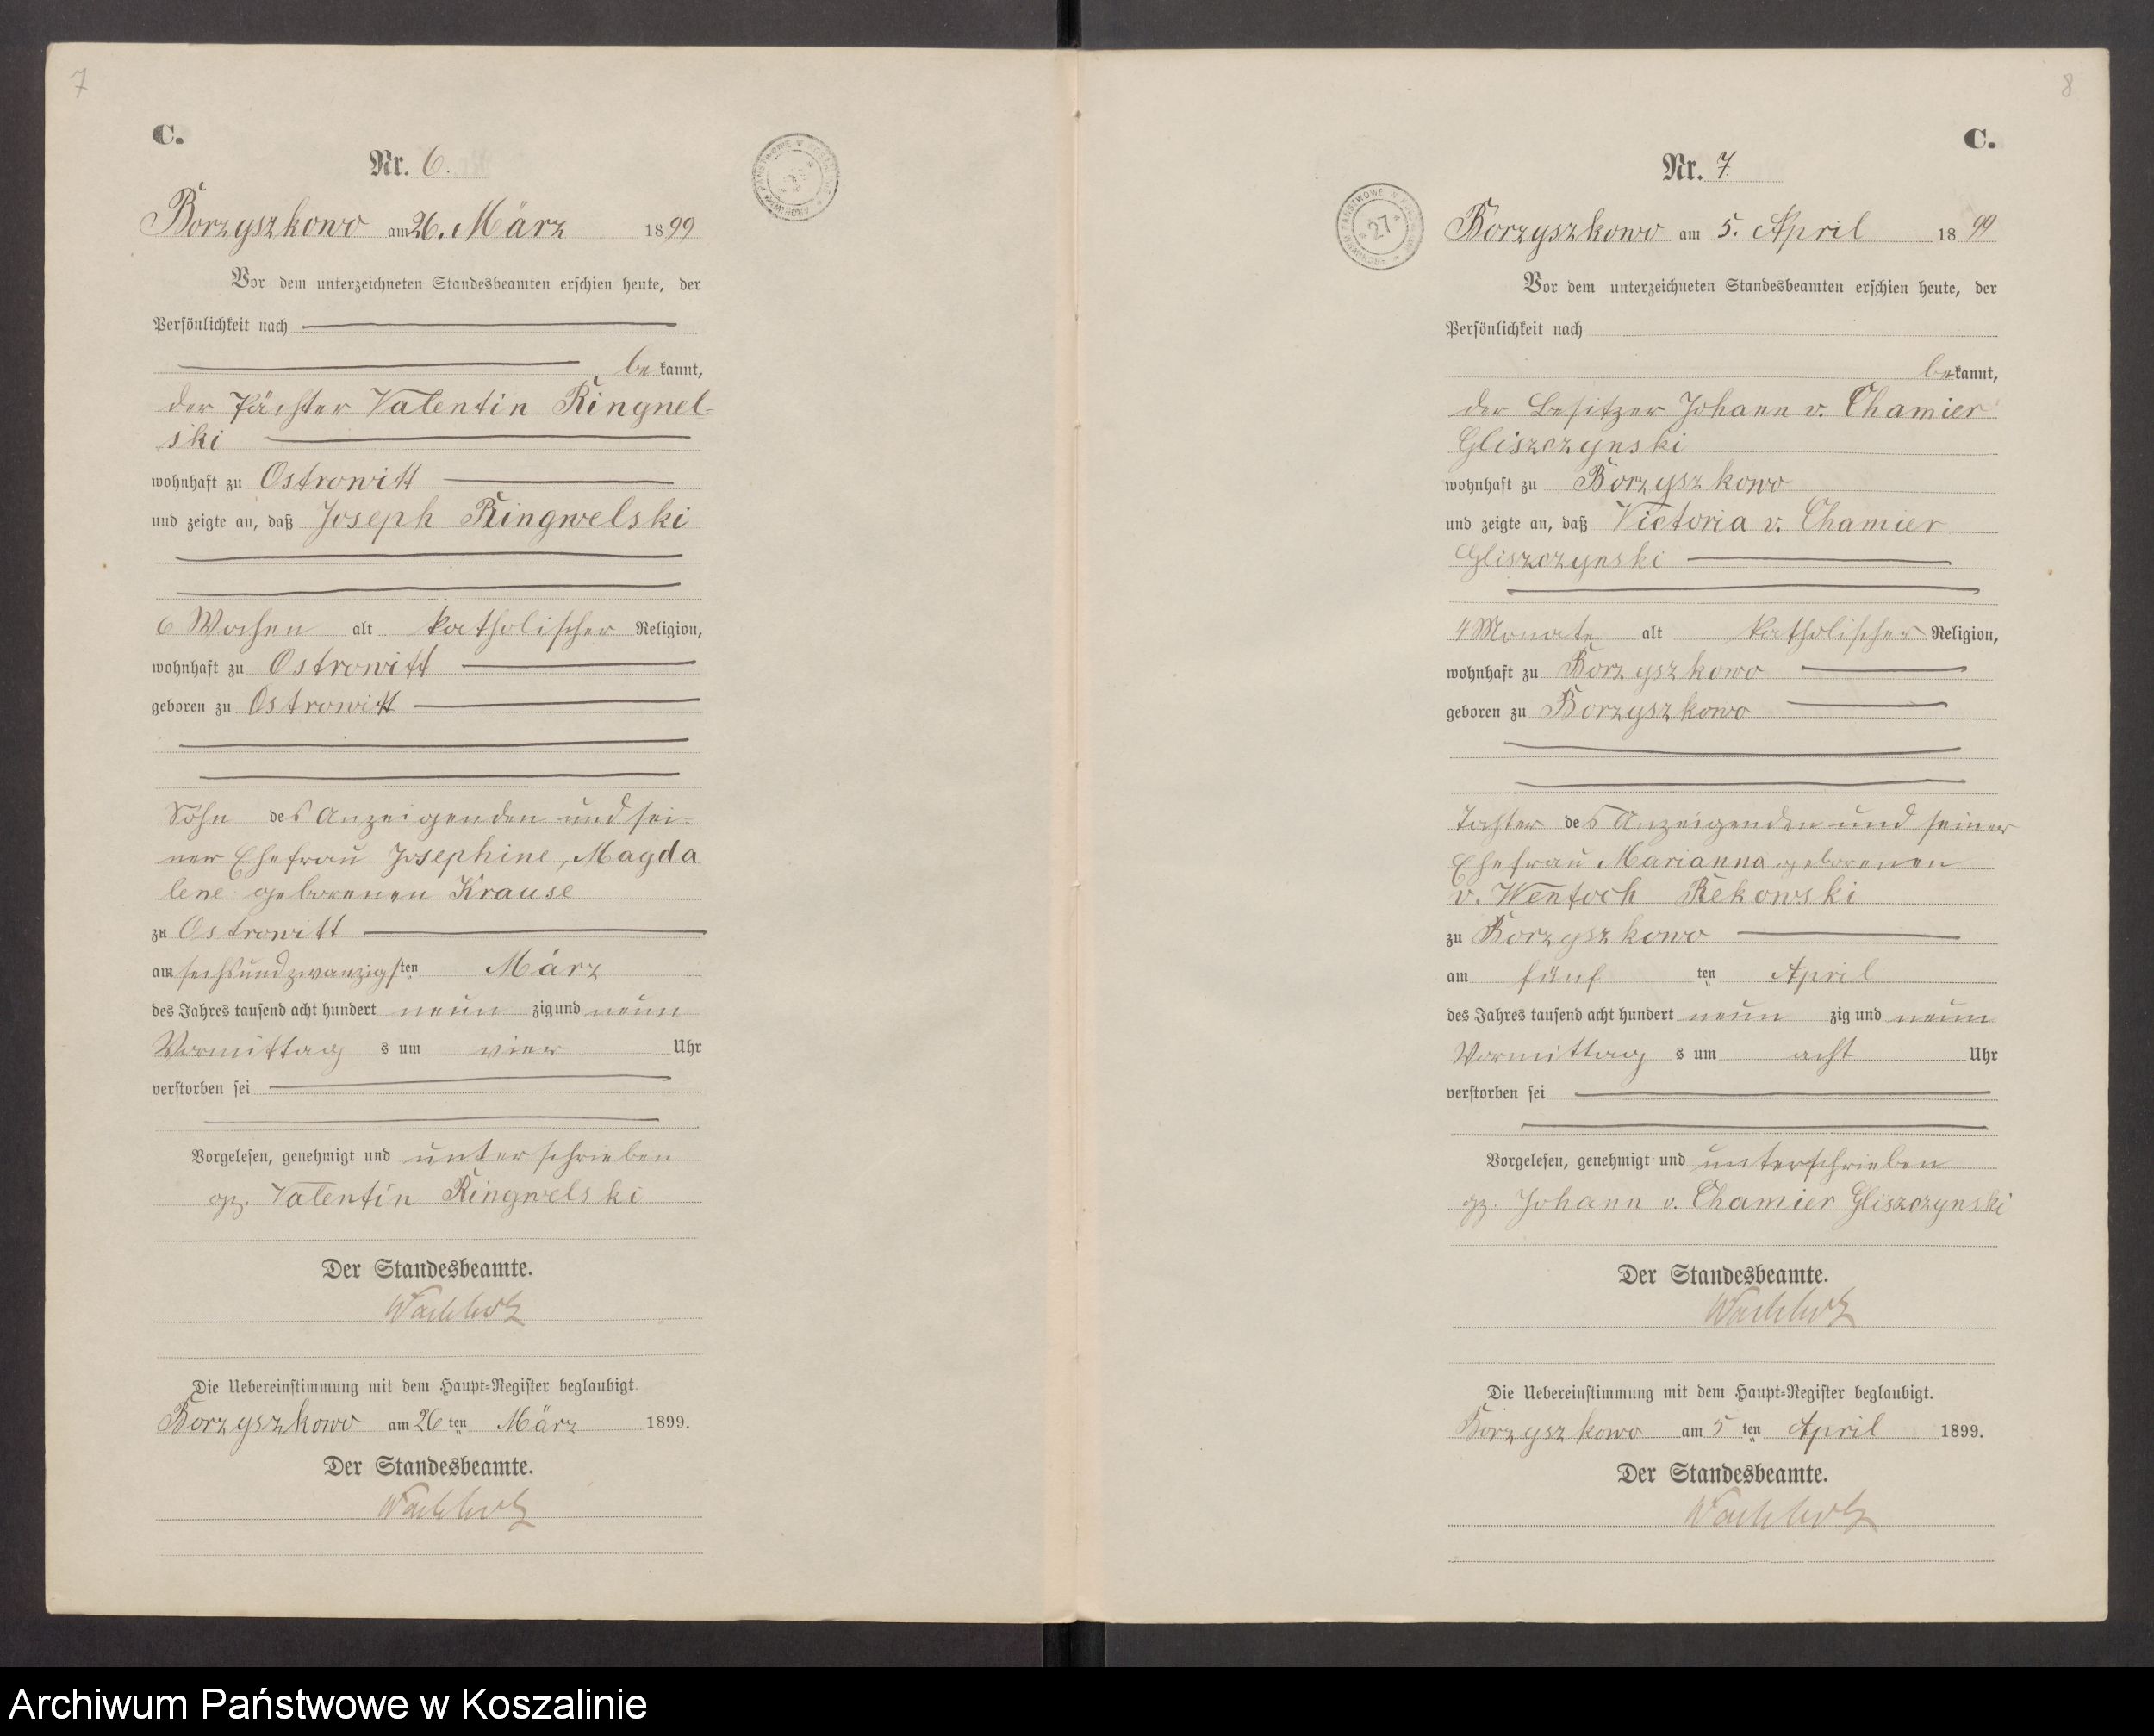 7
C.
Nr. 6.
Borzyszkowo am 26. März 1899
Vor dem unterzeichneten Standesbeamten erschien heute, der
Persönlichkeit nach
be kannt,
der Pächter Valentin Ringnel-
ski
wohnhaft zu Ostrowitt
und zeigte an, daß Joseph Ringwelski
6 Wochen alt katholischer Religion,
wohnhaft zu Ostrowitt
geboren zu Ostrowitt
Sohn des Anzeigenden und sei-
ner Ehefrau Josephine, Magda
lene geborenen Krause
zu Ostrowitt
am sechsundzwanzigsten März
des Jahres tausend acht hundert neun zig und neun
Vormittag s um vier Uhr
verstorben sei
Vorgelesen, genehmigt und unterschrieben
gz. Valentin Ringwelski
Der Standesbeamte.
Wachholz
Die Uebereinstimmung mit dem Haupt-Register beglaubigt.
Borzyszkowo am 26 ten März 1899.
Der Standesbeamte.
Wachholz
8
C.
Nr. 7.
27
Borzyszkowo am 5. April 1899
Vor dem unterzeichneten Standesbeamten erschien heute, der
Persönlichkeit nach
bekannt,
der Besitzer Johann v. Chamier
Gliszczynski
wohnhaft zu Borzyszkowo
und zeigte an, daß Victoria v. Chamier
Gliszczynski
4 Monate alt katholischer Religion,
wohnhaft zu Borzyszkowo
geboren zu Borzyszkowo
Tochter des Anzeigenden und seiner
Ehefrau Marianna geborenen
v. Wentoch Rekowski
zu Borzyszkowo
am fünf ten April
des Jahres tausend acht hundert neun zig und neun
Vormittag s um acht Uhr
verstorben sei
Vorgelesen, genehmigt und unterschrieben
gz. Johann v. Chamier Gliszczynski
Der Standesbeamte.
Wachholz
Die Uebereinstimmung mit dem Haupt-Register beglaubigt.
Borzyszkowo am 5 ten April 1899.
Der Standesbeamte.
Wachholz
Archiwum Państwowe w Koszalinie